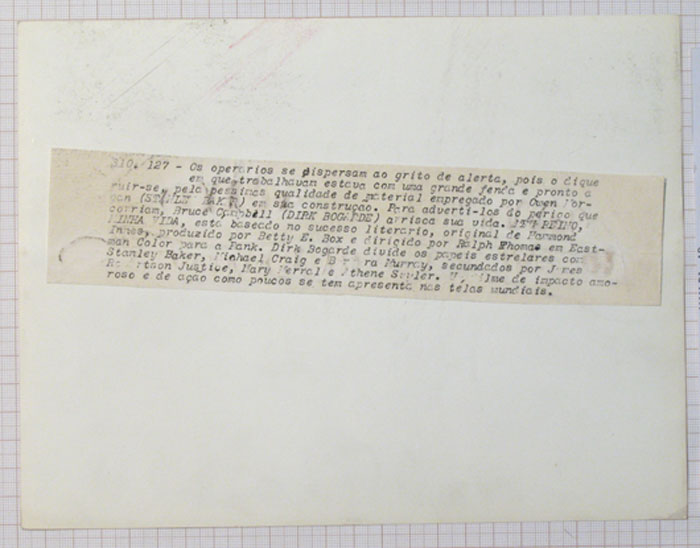 310. 127 - Os operarios se dispersam ao grito de alerta, pois o dique
em que trabalhavam estava com uma grande fenda e pronto a
ruir-se, pela pessima qualidade de material empregado por Owen Mor-
gan (STANLEY BAKER) em sua construçao. Para adverti-los do perigo que
corriam, Bruce Campbell (DIRK BOGARDE) arrisca sua vida. MEU REINO,
MINHA VIDA, esta baseado no sucesso literario, original de Hammond
Innes, produzido por Betty E. Box e dirigido por Ralph Thomas em East-
man Color para a Rank. Dirk Bogarde divide os papeis estrelares com
Stanley Baker, Michael Craig e Barbara Murray, secundados por James
Robertson Justice, Mary Merral e Athene Seyler. filme de impacto amo-
roso e de ação como poucos se tem apresenta nas telas mundiais.